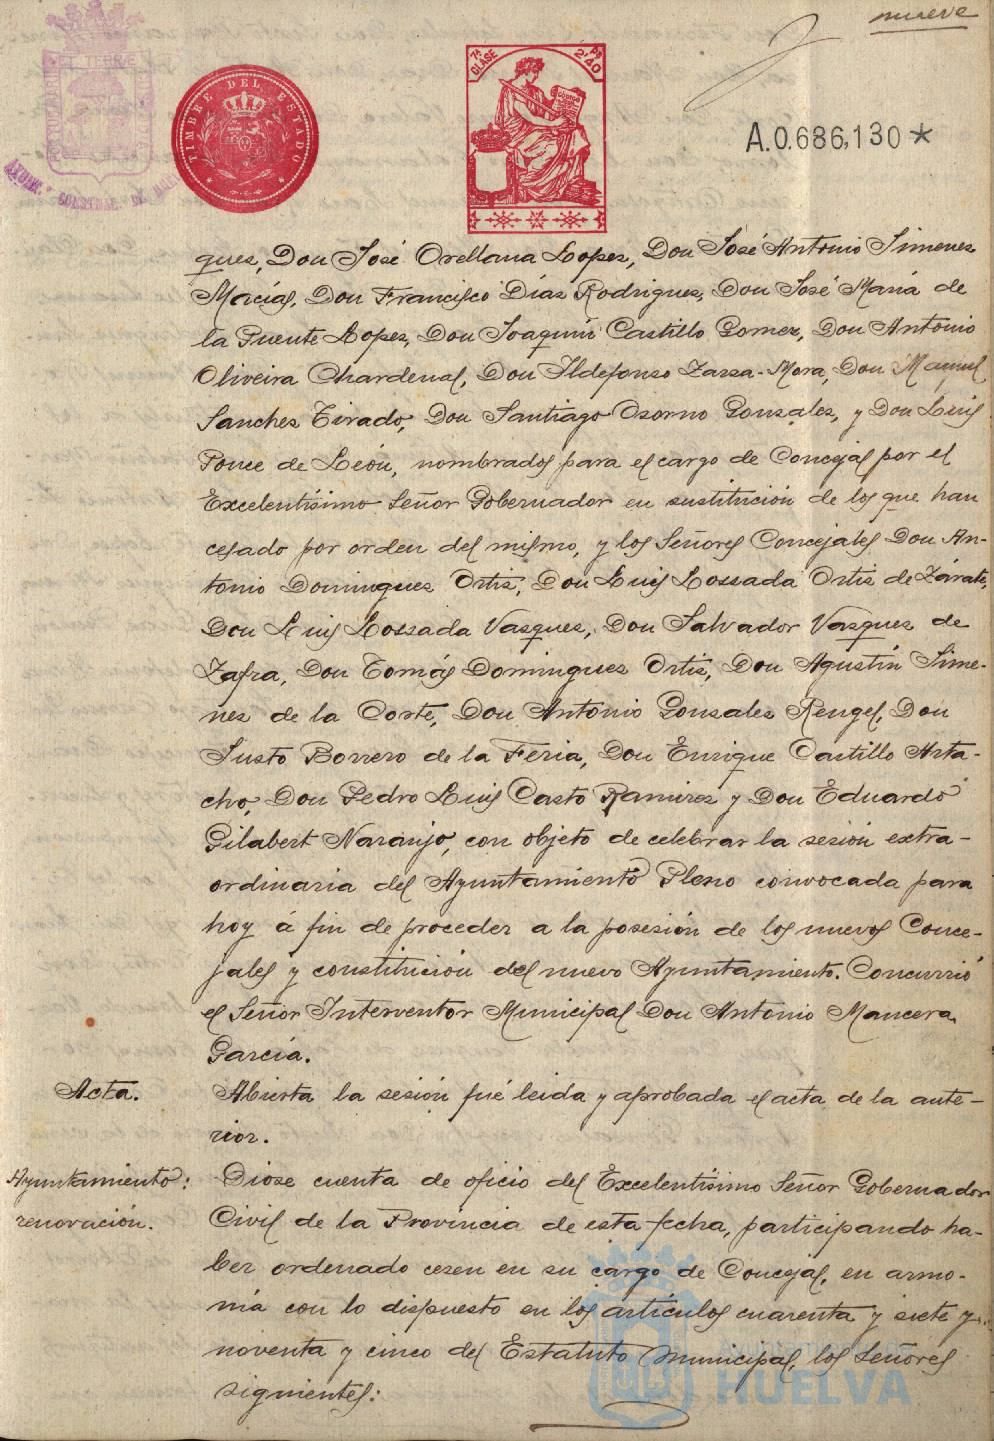 nueve
TIMBRE DEL ESTADO
7ª CLASE
PS 2'40
A.0.686,130 *
ques, Don José Orellana Lopes, Don José Antonio Jimenes
Macías, Don Francisco Días Rodrigues, Don José María de
la Puente Lopes, Don Joaquín Castillo Gomez, Don Antonio
Oliveira Chardenal, Don Ildefonso Zarza-Mora, Don Manuel
Sanches Tirado, Don Santiago Osorno Gonsales, y Don Luis
Ponce de León, nombrados para el cargo de Concejal por el
Excelentísimo Señor Gobernador en sustitución de los que han
cesado por orden del mismo, y los Señores Concejales Don An-
tonio Domingues Ortis, Don Luis Lossada Ortis de Zárate,
Don Luis Lossada Vasques, Don Salvador Vasques de
Zafra, Don Tomás Domingues Ortis, Don Agustín Jime-
nes de la Corte, Don Antonio Gonsales Rengel, Don
Justo Borrero de la Feria, Don Enrique Castillo Arta-
cho, Don Pedro Luis Casto Ramires y Don Eduardo
Gilabert Naranjo, con objeto de celebrar la sesión extra-
ordinaria del Ayuntamiento Pleno convocada para
hoy á fin de proceder a la posesión de los nuevos Conce-
jales y constitución del nuevo Ayuntamiento. Concurrió
el Señor Interventor Municipal Don Antonio Mancera
García.
Acta.
Abierta la sesión fué leida y aprobada el acta de la ante-
rior.
Ayuntamiento:
renovación.
Diose cuenta de oficio del Excelentísimo Señor Gobernador
Civil de la Provincia de esta fecha, participando ha-
ber ordenado cesen en su cargo de Concejal, en armo-
nía con lo dispuesto en los artículos cuarenta y siete y
noventa y cinco del Estatuto Municipal, los Señores
siguientes:
HUELVA